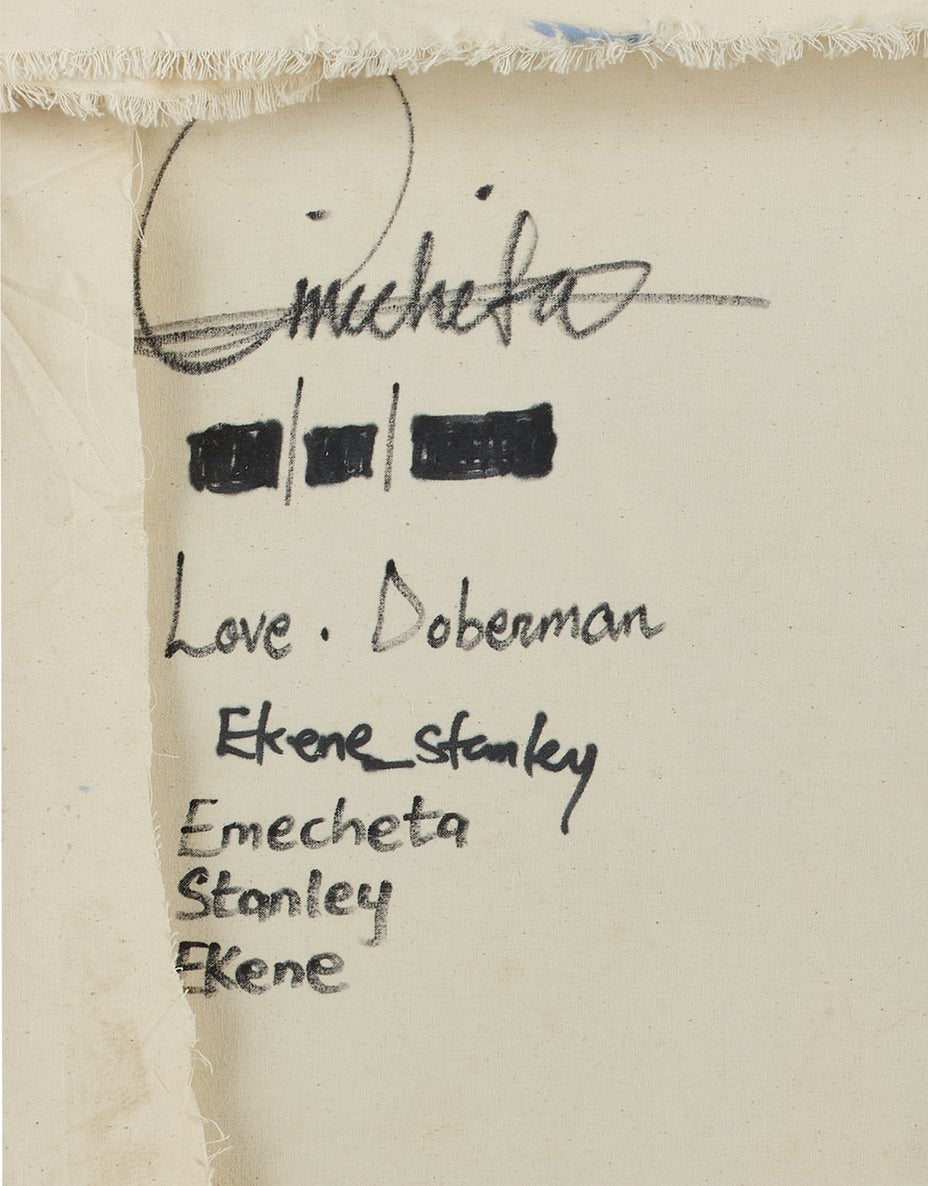 Emecheta
Love. Doberman
Ekene_stanley
Emecheta
Stanley
Ekene